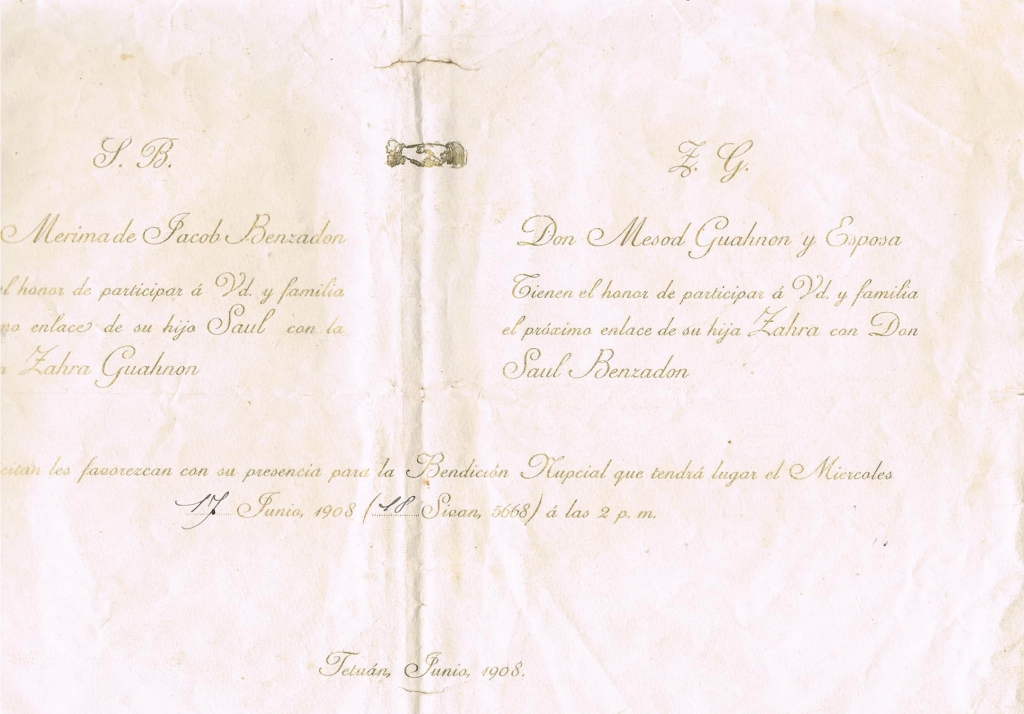 S. B.
Merima de Jacob Benzadon
el honor de participar á Vd. y familia
enlace de su hijo Saul con la
Zahra Guahnon
Z. G.
Don Mesod Guahnon y Esposa
Tienen el honor de participar á Vd. y familia
el próximo enlace de su hija Zahra con Don
Saul Benzadon
les favorezcan con su presencia para la Bendición Nupcial que tendrá lugar el Miercoles
17 Junio, 1908 (18 Sivan, 5668) á las 2 p. m.
Tetuán, Junio, 1908.